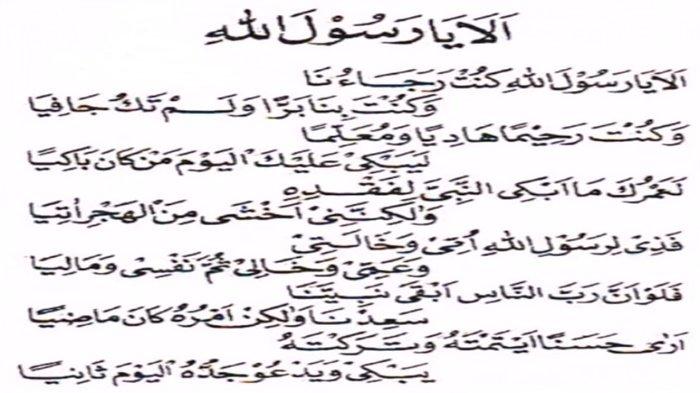 اَلَا يَا رَسُوْلَ اللهِ
اَلَا يَا رَسُوْلَ اللهِ كُنْتَ رَجَاءُنَا
وَكُنْتَ بِنَا بَرًّا وَلَمْ تَكُ جَافِيَا
وَكُنْتَ رَحِيْمًا هَادِيًا وَمُعَلِّمًا
لِيَبْكِيْ عَلَيْكَ الْيَوْمَ مَنْ كَانَ بَاكِيًا
لَعَمْرُكَ مَا اَبْكِى النَّبِيَّ لِفَقْدِهِ
وَلٰكِنَّنِيْ اَخْشٰى مِنَ الْهَجْرِ اٰتِيَا
فَذِىْ لِرَسُوْلِ اللهِ اُمِّيْ وَخَالَتِيْ
وَعَمِّيْ وَخَالِيْ ثُمَّ نَفْسِيْ وَمَالِيَا
فَلَوْ اَنَّ رَبَّ النَّاسِ اَبْقٰى نَبِيَّنَا
سَعِدْنَا وَلٰكِنْ اَمْرُهُ كَانَ مَاضِيًا
اَرٰى حَسَنًا اَيْتَمْتَهُ وَتَرَكْتَهُ
يَبْكِيْ وَيَدْعُوْ جَدُّهُ الْيَوْمَ ثَانِيًا